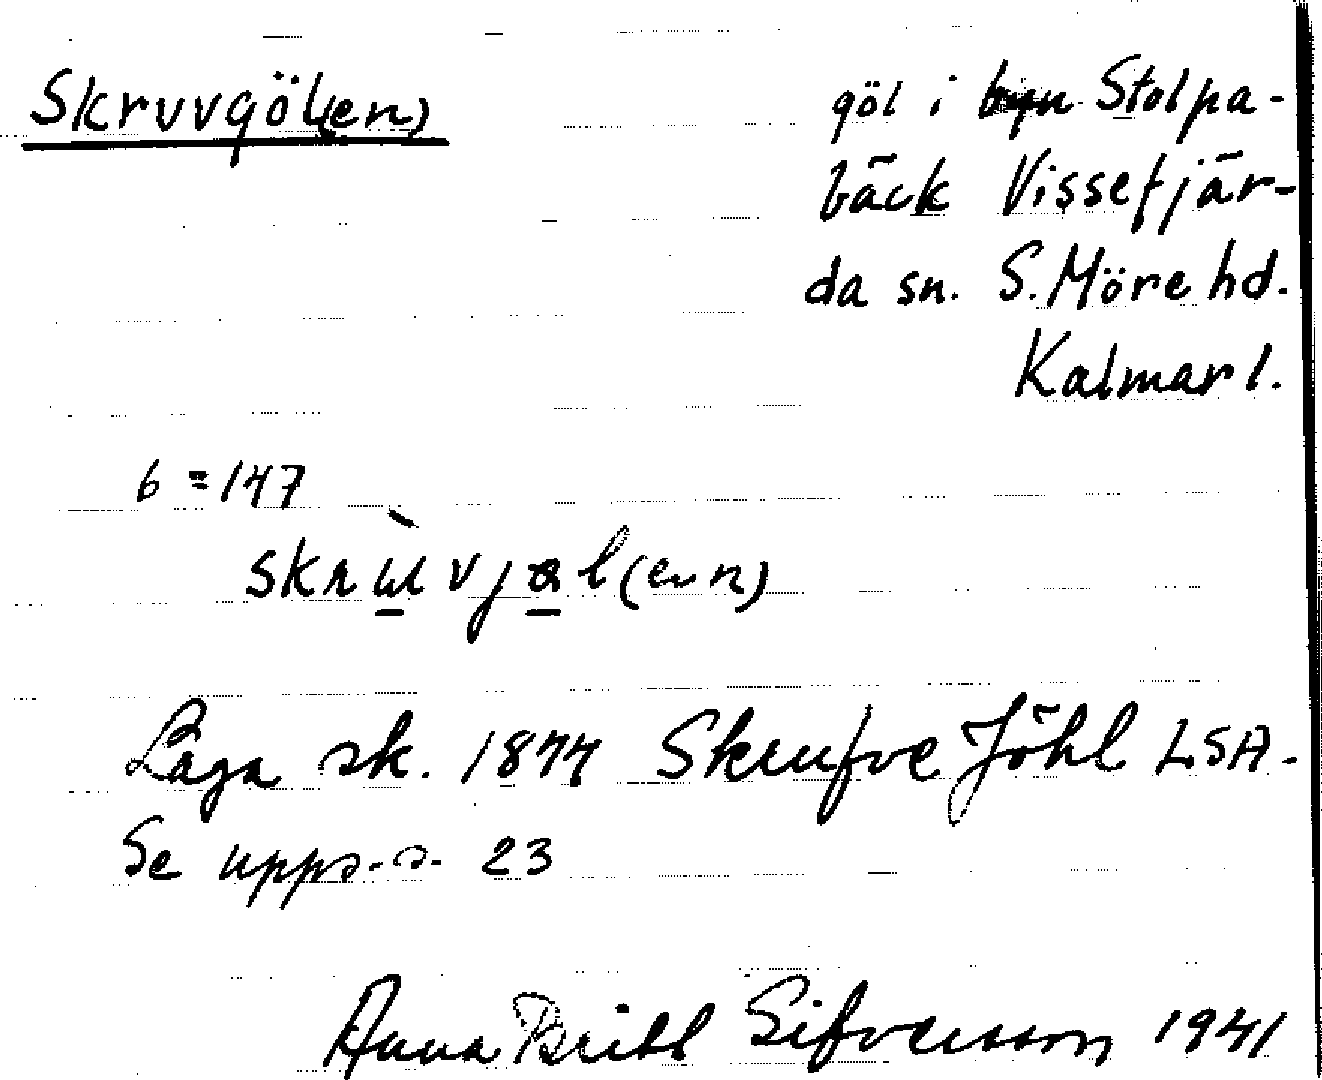 Skruvgöl(en)
göl i byn Stolpa-
bäck Vissefjär-
da sn. S. Möre hd.
Kalmar l.
6 = 147
Laga sk. 1874 Skrufve Jöhl LSA.
Se upps. s. 23
Anna Britt Sifversson 1941